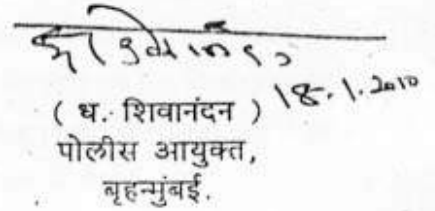 18.1.2010
( ध. शिवानंदन )
पोलीस आयुक्त,
बृहन्मुंबई.